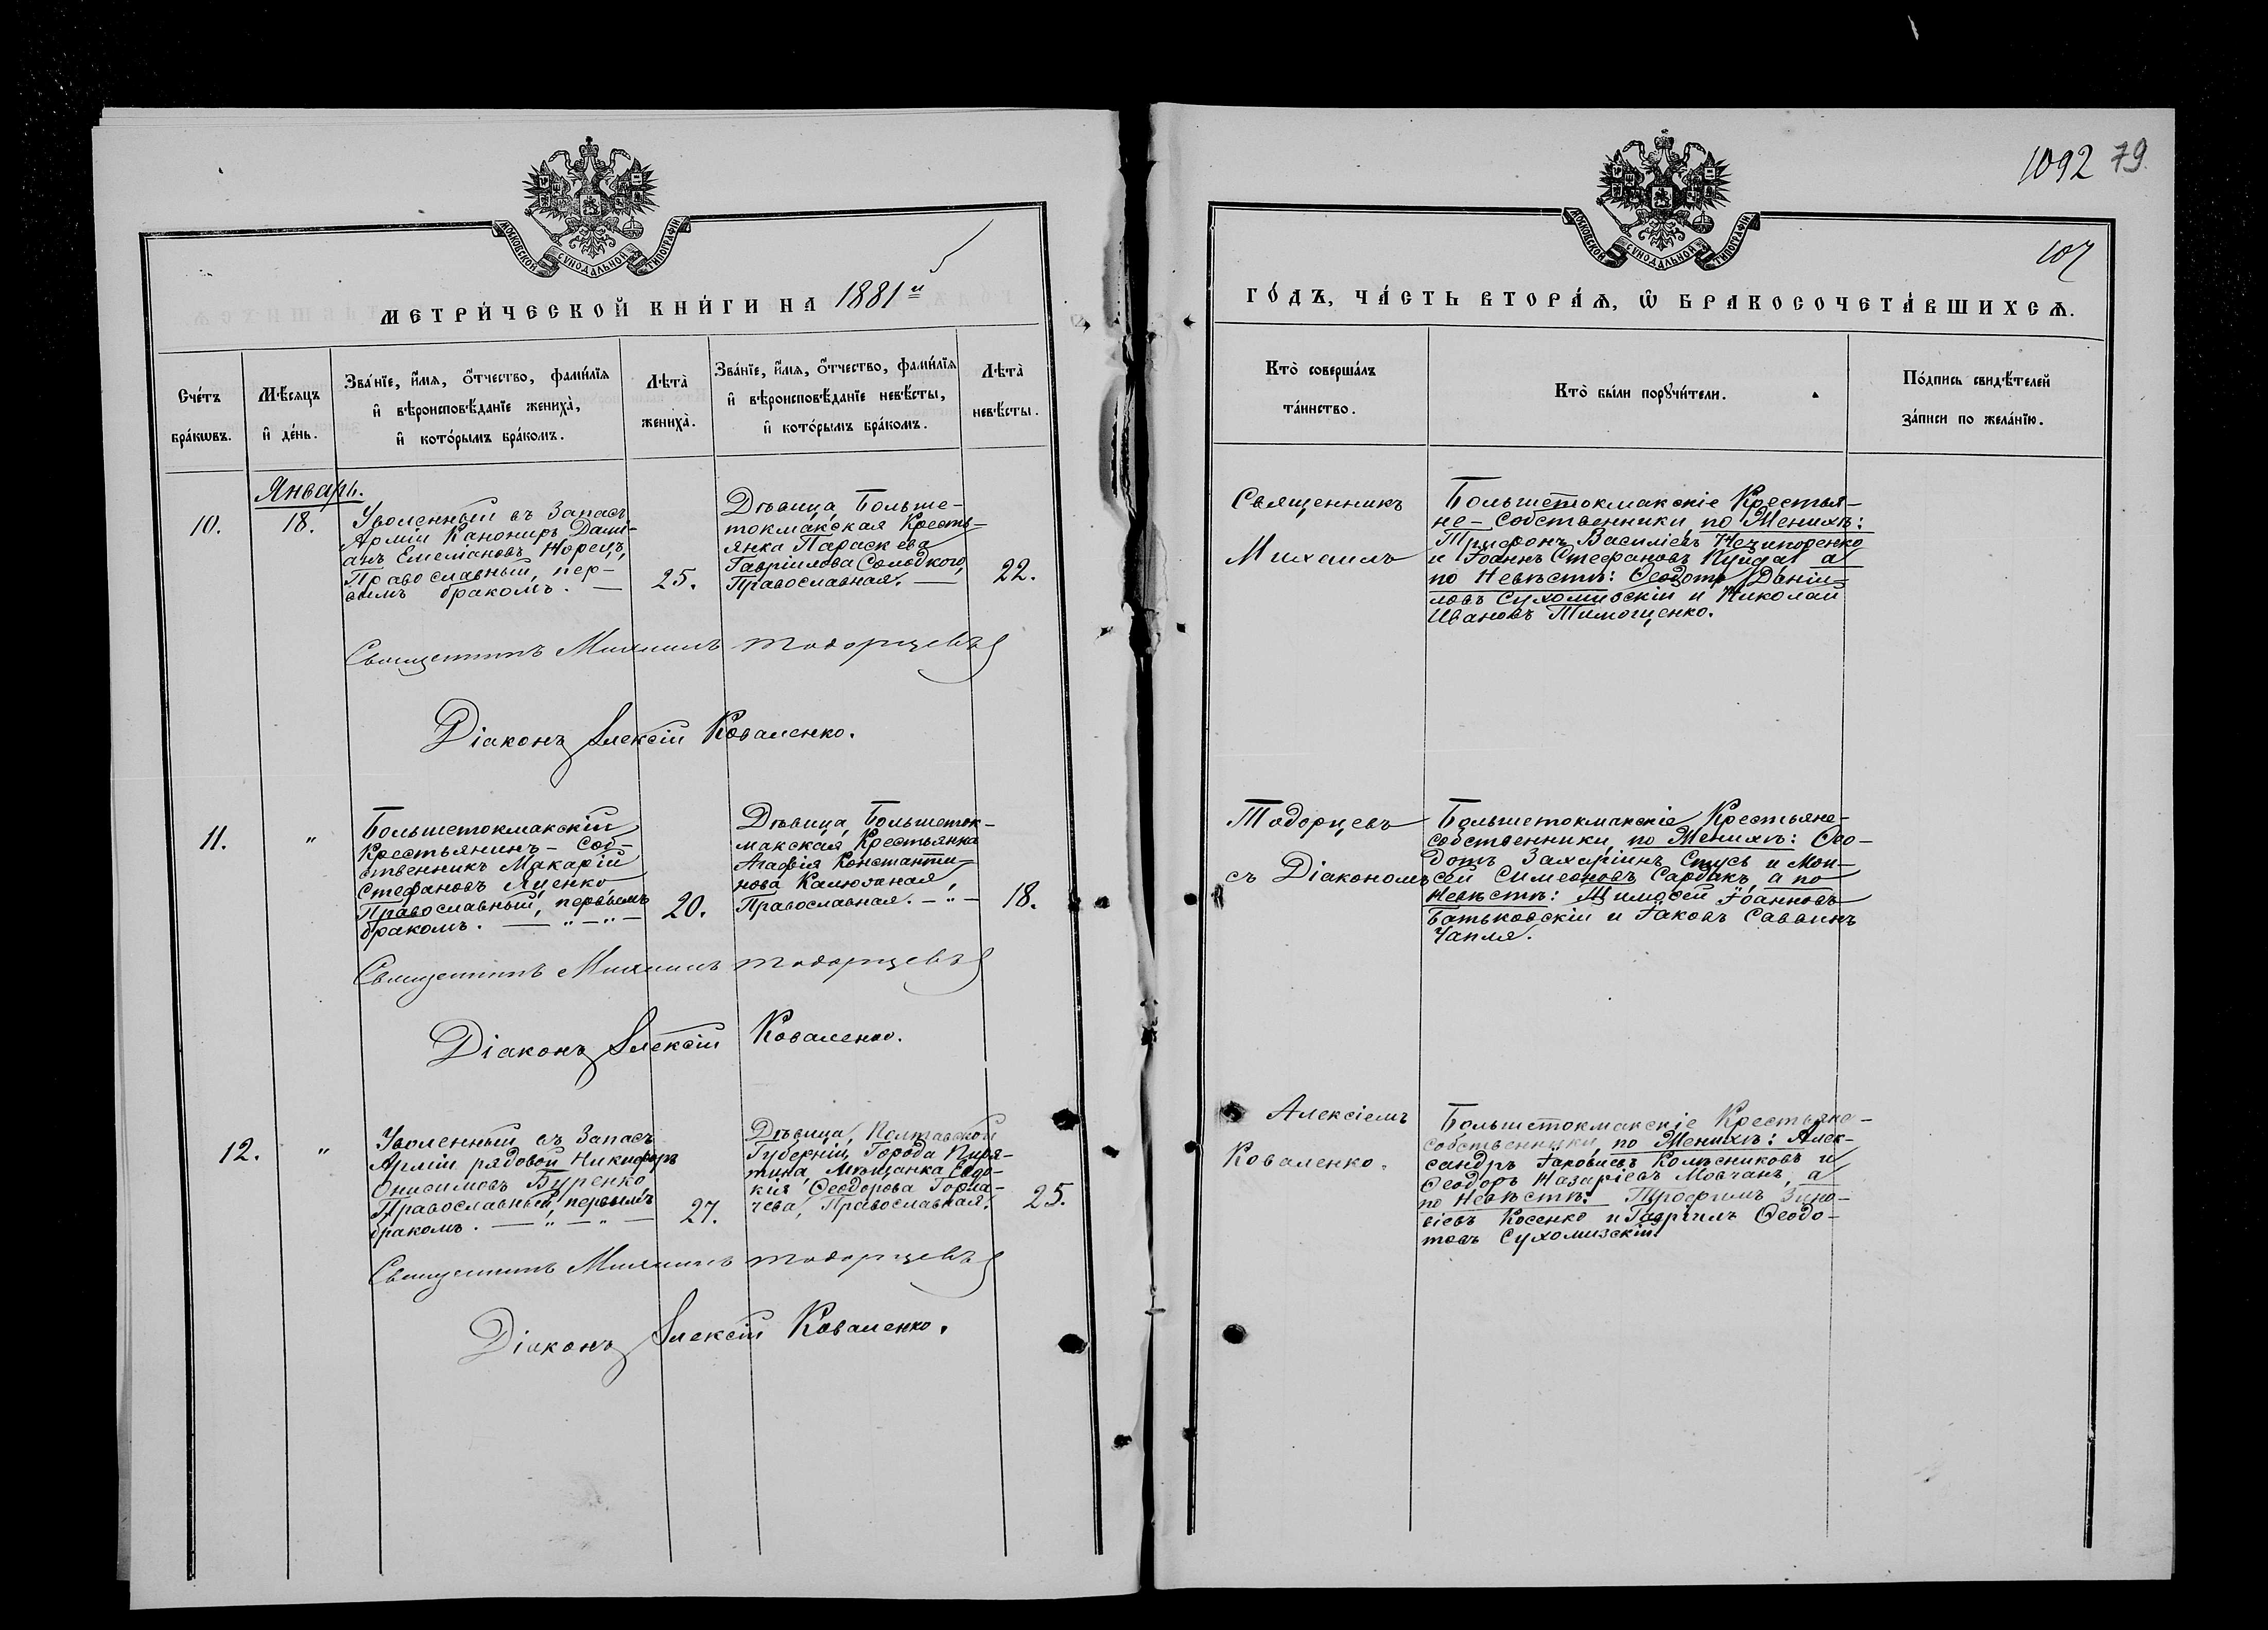 МОСКОВСКОЙ СѴНОДАЛЬНОЙ ТИПОГРАФІИ
МЕТРИ́ЧЕСКОЙ КНИ́ГИ НА 1881й
Сче́тъ бра́кωвъ.
Мѣ́сяцъ и҆ де́нь.
Зва́нїе, и҆́мѧ, ѻ҆́тчество, фами́лїѧ
и҆ вѣроисповѣ́данїе жениха̀,
и҆ кото́рымъ бра́комъ.
Лѣта̀
жениха̀.
Зва́нїе, и҆́мѧ, ѻ҆́тчество, фами́лїѧ
и҆ вѣроисповѣ́данїе невѣ́сты,
и҆ кото́рымъ бра́комъ.
Лѣта̀
невѣ́сты.
Январь.
10.
18.
Уволенный въ Запасъ
Арміи Канониръ Дамі-
анъ Емеліановъ Норецъ,
Православный, пер-
вымъ бракомъ. —
25.
Дѣвица, Больше-
токмакская Кресть-
янка Параскева
Гавріилова Солодкого,
Православная. —
22.
Священникъ Михаилъ Тодорцевъ
Діаконъ Алексій Коваленко.
11.
"
Большетокмакскій
Крестьянинъ - Соб-
ственникъ Макарій
Стефановъ Яценко
Православный, первымъ
бракомъ. — " — " —
20.
Дѣвица, Большеток-
макская Крестьянка
Агафія Константи-
нова Калюжная,
Православная. — " —
18.
Священникъ Михаилъ Тодорцевъ
Діаконъ Алексій Коваленко.
12.
"
Уволенный въ Запасъ
Арміи рядовой Никифоръ
Онисимовъ Буренко
Православный, первымъ
бракомъ. — " — " —
27.
Дѣвица, Полтавской
Губерніи, Города Пиря-
тина, Мѣщанка Евдо-
кія Ѳеодорова Горла-
чева, Православная.
25.
Священникъ Михаилъ Тодорцевъ
Діаконъ Алексій Коваленко.
1092 79.
МОСКОВСКОЙ СѴНОДАЛЬНОЙ ТИПОГРАФІИ
107
ГО́ДЪ, ЧА́СТЬ ВТОРА́Ѧ, Ѽ БРАКОСОЧЕТА́ВШИХСѦ.
Кто̀ соверша́лъ
та́инство.
Кто̀ бы́ли порꙋчи́тели.
По́дпись свидѣ́телей
за́писи по жела́нїю.
Священникъ
Михаилъ
Большетокмакскіе Крестья-
не - Собственники, по Женихѣ:
Трифонъ Василіевъ Нечипоренко
и Іоаннъ Стефановъ Пуйда, а
по Невѣстѣ: Ѳеодотъ Даніи-
ловъ Сухомизскій и Николай
Ивановъ Тимощенко.
Тодорцевъ
съ Діакономъ
Большетокмакскіе Крестьяне-
собственники, по Женихѣ: Ѳео-
дотъ Захаріинъ Стусь и Мои-
сей Симеоновъ Сардакъ, а по
Невѣстѣ: Тимоѳей Іоанновъ
Батьковскій и Іаковъ Саввинъ
Чапля.
Алексіемъ
Коваленко.
Большетокмакскіе Крестьяне-
собственники, по Женихѣ: Алек-
сандръ Іаковлевъ Колѣсниковъ и
Ѳеодоръ Назаріевъ Мовчанъ, а
по Невѣстѣ: Трофимъ Зино-
віевъ Косенко и Гавріилъ Ѳеодо-
товъ Сухомизскій.